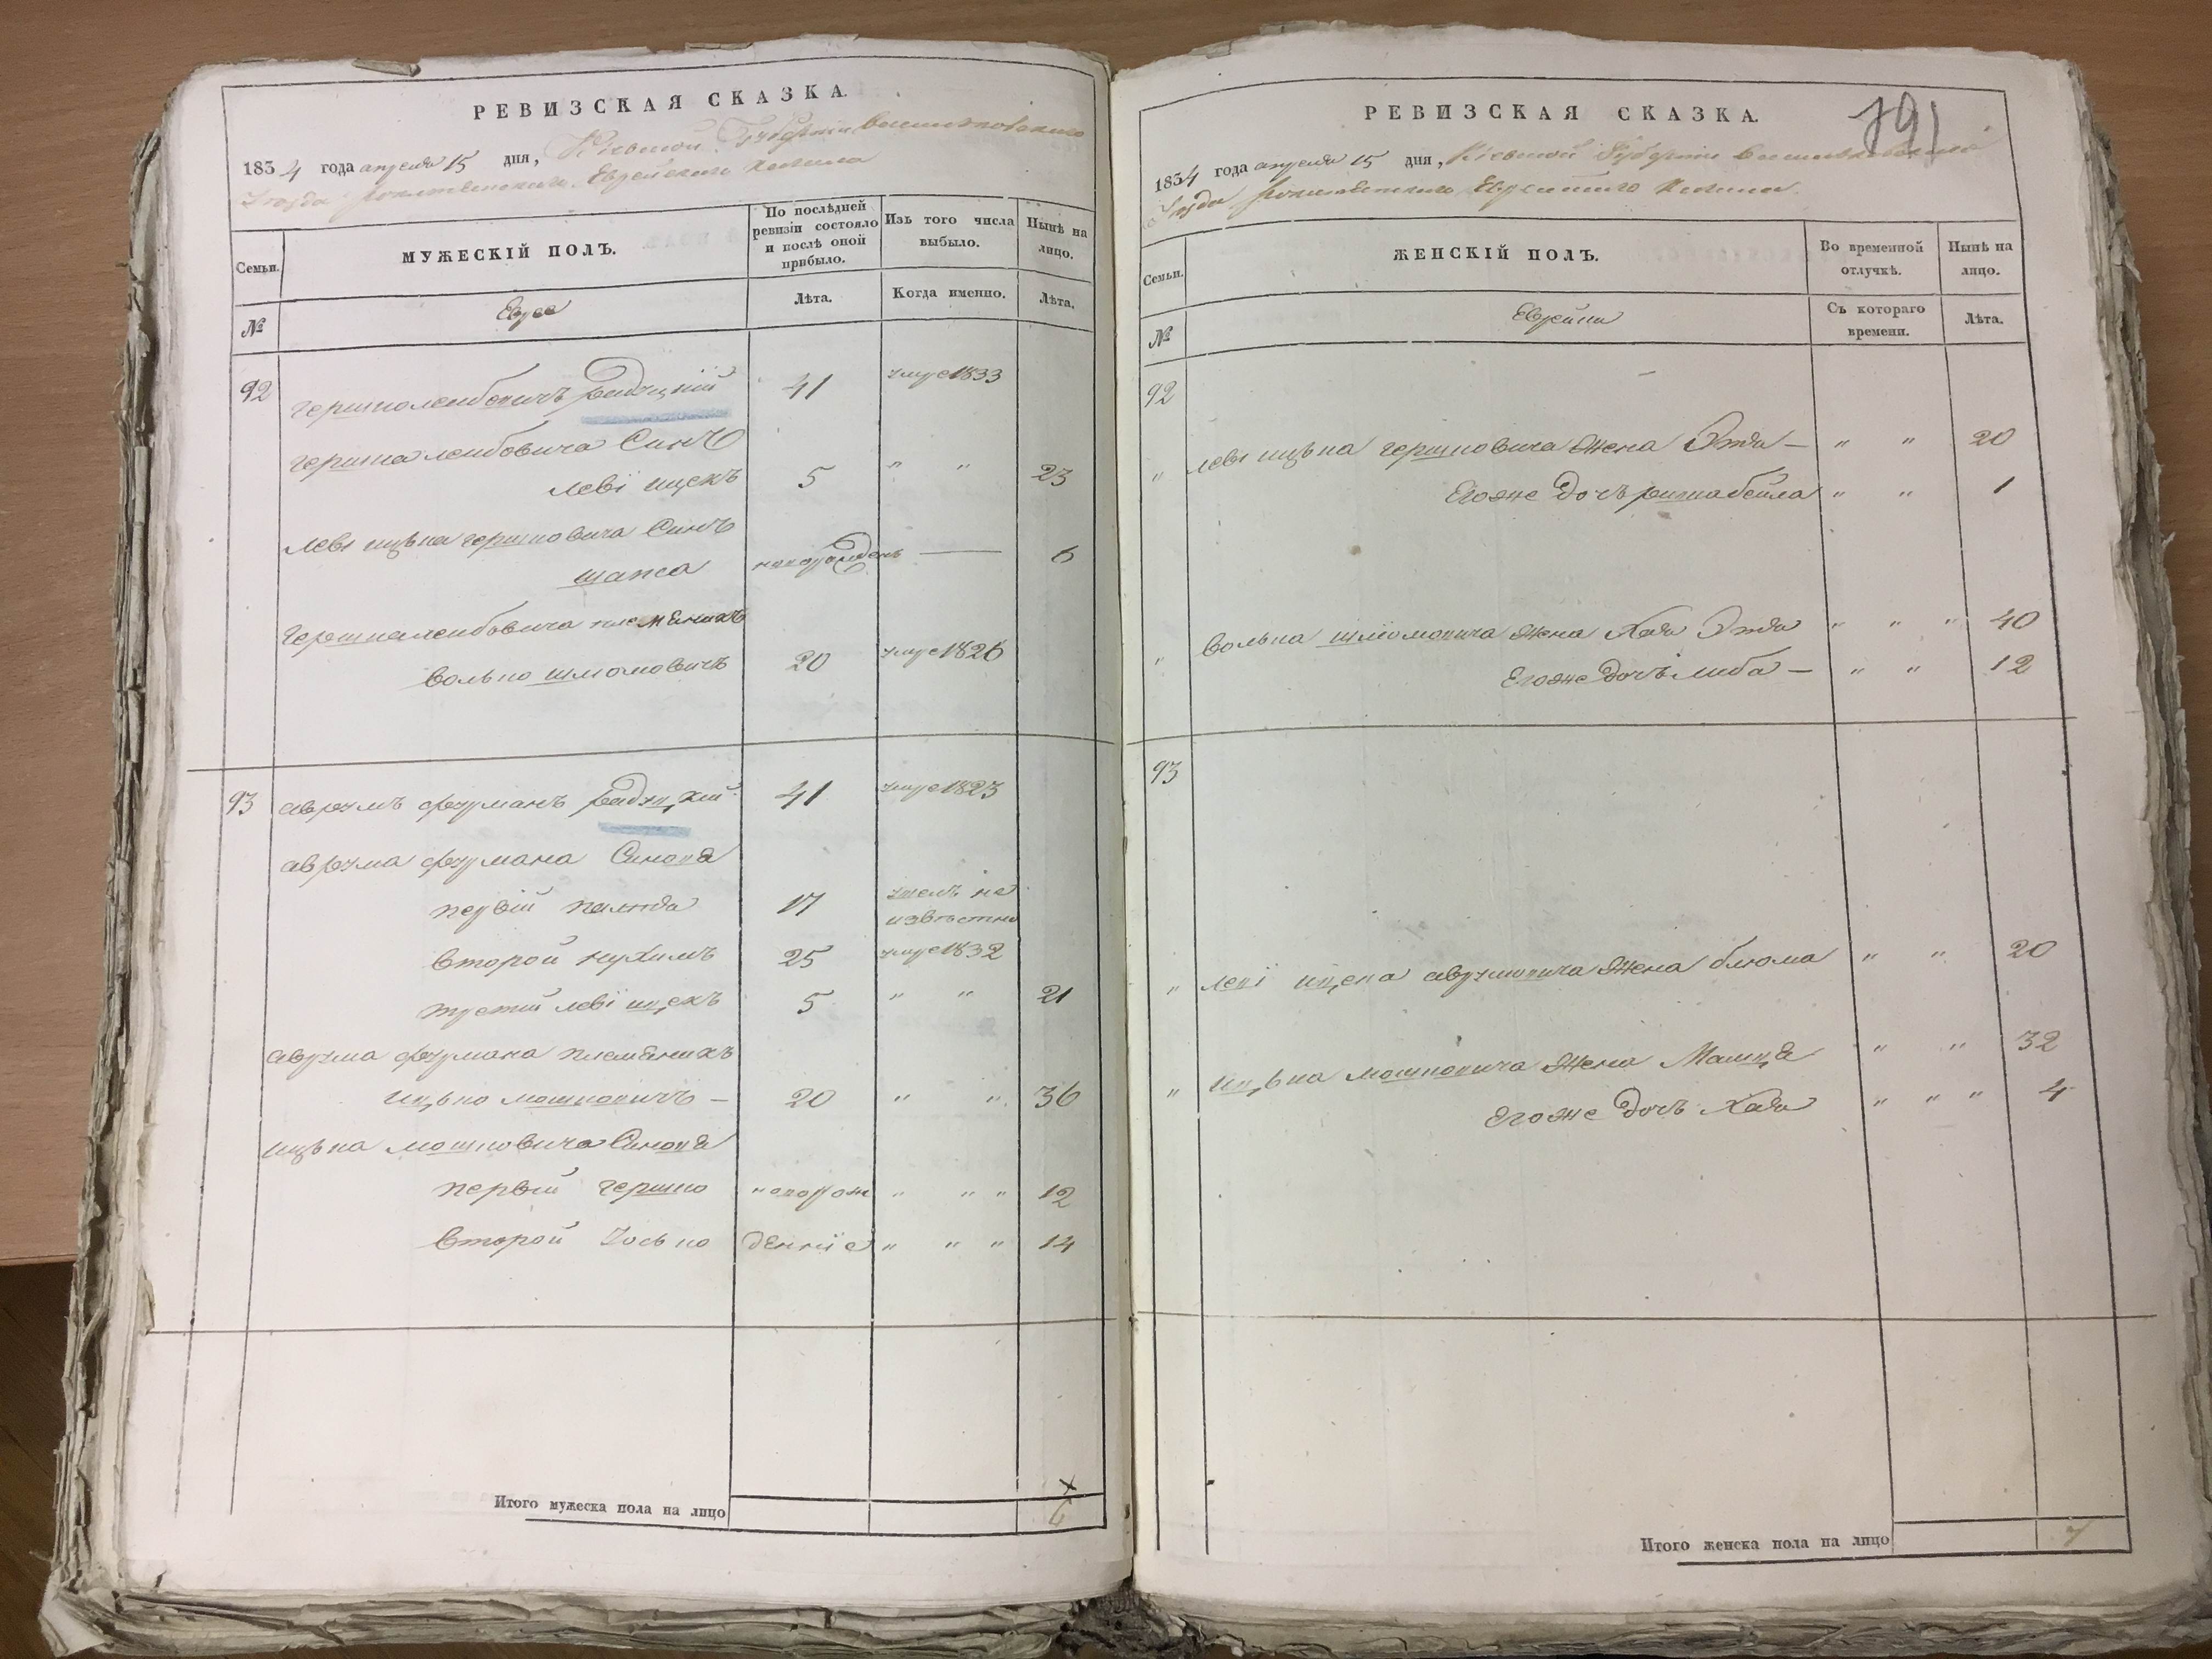 РЕВИЗСКАЯ СКАЗКА.
1834 года апреля 15 дня, Кіевской Губерніи Васильковскаго
Уезда Рокитянскаго Еврейскаго Кагала
Семьи.
МУЖЕСКІЙ ПОЛЪ.
По послѣдней ревизіи состояло и послѣ оной прибыло.
Изъ того числа выбыло.
Нынѣ на лицо.
№
Евреи
Лѣта.
Когда именно.
Лѣта.
92 Гершко Лейбовичъ Радуцкій 41 умре 1833
Гершка Лейбовича Синъ
Леві Ицекъ 5 " " 23
Леві Ицька Гершковича Синъ
Шапса новорожденъ — 6
Гершка Лейбовича племѣникъ
Волько Шломовичъ 20 умре 1826
93 Аврумъ Фурманъ Радуцкій 41 умре 1823
Аврума Фурмана Синовя
первій 17 неизвѣстно
второй Нухимъ 25 умре 1832
третій Леві Ицекъ 5 " " 21
Аврума Фурмана племѣникъ
Ицько Мошковичъ — 20 " " 36
Ицька Мошковича Синовя
первій Гершко новорож " " " 12
второй Іосько деннiе " " " 14
Итого мужеска пола на лицо 6
РЕВИЗСКАЯ СКАЗКА.
791
1834 года апреля 15 дня, Кіевской Губерніи Васильковскаго
Уезда Рокитянскаго Еврейскаго Кагала.
Семьи.
ЖЕНСКІЙ ПОЛЪ.
Во временной отлучкѣ.
Нынѣ на лицо.
№
Еврейки
Съ котораго времени.
Лѣта.
92
" Леві Ицька Гершковича Жена Эжа — " " 20
Егоже дочъ Бейла " " 1
" Волька Шліомовича Жена Хая Эжа " " " 40
Егоже дочъ Либа — " " 12
93
" Леві Ицека Аврумовича Жена Блюма " " 20
" Ицька Мошковича Жена " " 32
Егоже Дочъ Хая " " " 4
Итого женска пола на лицо 7